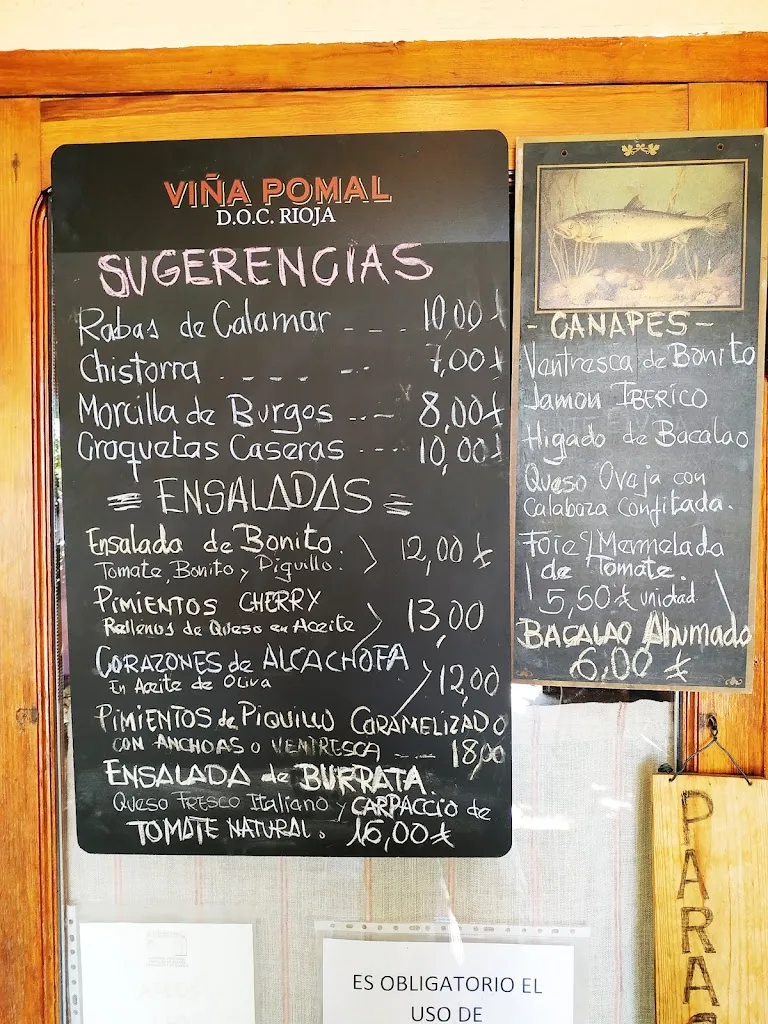 VIÑA POMAL
D.O.C. RIOJA
SUGERENCIAS
Rabas de Calamar --- 10,00 €
Chistorra ---- -- 7,00 €
Morcilla de Burgos --- 8,00 €
Croquetas Caseras --- 10,00 €
= ENSALADAS =
Ensalada de Bonito. 12,00 €
Tomate, Bonito y Piquillo.
PIMIENTOS CHERRY 13,00
Rellenos de Queso en Aceite
CORAZONES de ALCACHOFA 12,00
En Aceite de Oliva
PIMIENTOS de PIQUILLO CARAMELIZADO
CON ANCHOAS O VENTRESCA --- 18,00
ENSALADA de BURRATA.
Queso FRESCO Italiano y CARPACCIO de
TOMATE NATURAL. 16,00 €
- CANAPES -
Ventresca de Bonito
Jamon IBERICO
Higado de Bacalao
Queso Oveja con
Calabaza Confitada.
Foie y Mermelada
de Tomate.
5,50 € unidad
BACALAO Ahumado
6,00 €
PARA
ES OBLIGATORIO EL
USO DE